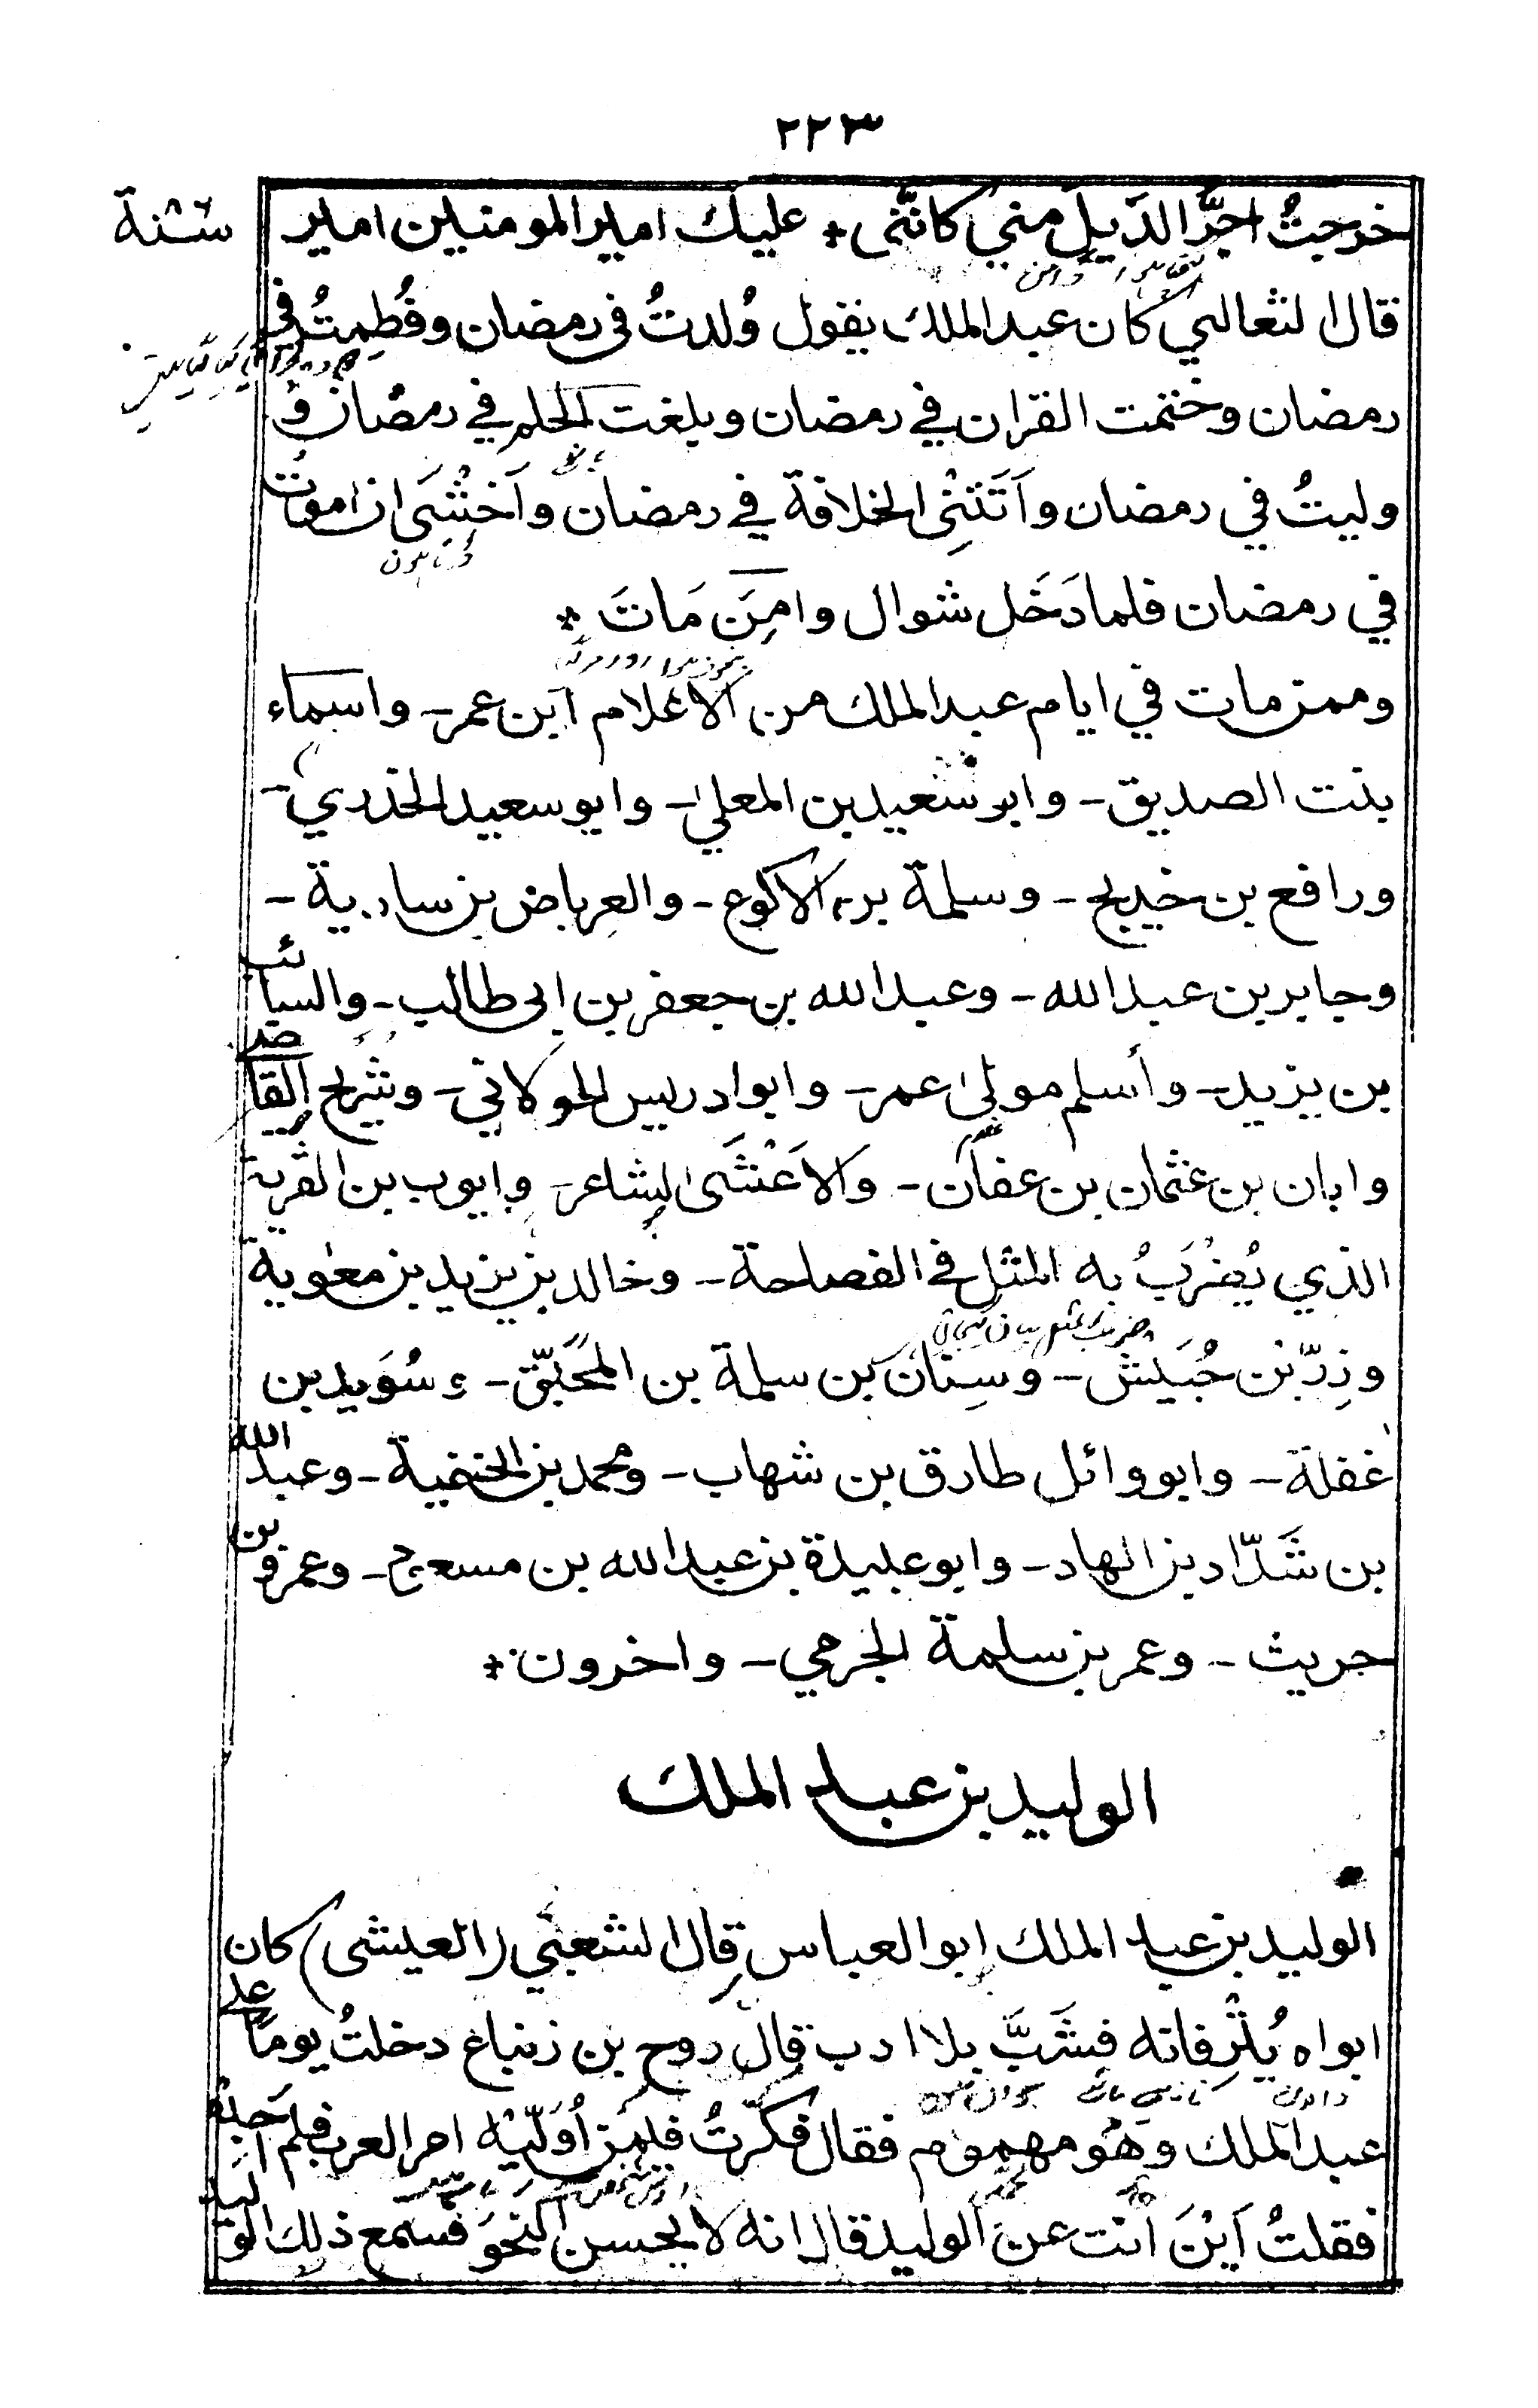 ٢٢٣
خرجتُ اجرَّ الذيلَ مني كاننى * عليك امير المومنين امير
سنة
فقال الثعالبي كان عبد الملك يقول وُلدتُ فى رمضان وفُطِمتُ في
رمضان وختمت القران في رمضان وبلغت الحلم في رمضان و
وليتُ في رمضان واَتَتْنِى الخلافة في رمضان واَخْشَى ان اموت
في رمضان فلما دَخَل شوال وامِنَ مَاتَ *
وممن مات في ايام عبد الملك من الاعلام ابن عمر - واسماء
بنت الصديق - وابو سعيد بن المعلى - وابو سعيد الخدري -
ورافع بن خديج - وسلمة بن الاكوع - والعرباض بن سارية -
وجابر بن عبد الله - وعبد الله بن جعفر بن ابى طالب - والسائب
بن يزيد - وأسلم مولى عمر - وابو ادريس الخولاني - وشريح القاضى
وابان بن عثمان بن عفان - والاَعْشَى الشاعر - وايوب بن القرية
الذي يُضْرَبُ به المثل في الفصاحة - وخالد بن يزيد بن معٰوية
وزِرّ بن حُبَيش - وسِنان بن سلمة بن المحَبّق - وسُوَيد بن
غفلة - وابو وائل طارق بن شهاب - ومحمد بن الحنفية - وعبد الله
بن شَدّاد بن الهاد - وابو عبيدة بن عبد الله بن مسعود - وعمرو بن
حريث - وعمر بن سلمة الجرمي - واخرون *
الوليد بن عبد الملك
الوليد بن عبد الملك ابو العباس قال الشعبي (العيشى) كان
ابواه يُتْرِفانه فشَبَّ بلا ادب قال روح بن زنباغ دخلتُ يومًا على
عبد الملك وهُو مهموم فقال فكّرتُ فيمن اُوَلِّيْه امر العرب فلم اَجِدْه
فقلتُ اَيْنَ اَنت عن الوليد قال انه لا يحسن النحوَ فسمع ذلك الوليد